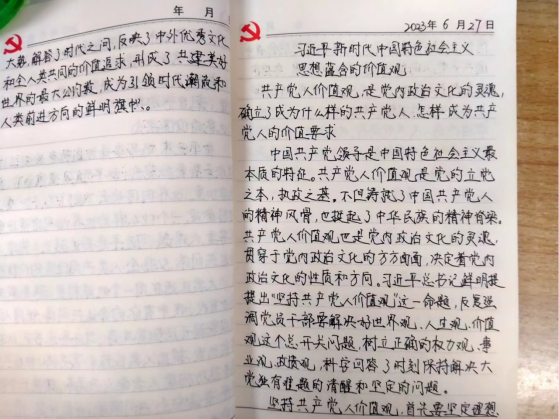 年 月
大势,解答了时代之问,反映了中外优秀文化
和全人类共同的价值追求,形成了共建美好
世界的最大公约数,成为引领时代潮流和
人类前进方向的鲜明旗帜。
2023年6月27日
习近平新时代中国特色社会主义
思想蕴含的价值观
共产党人价值观,是党内政治文化的灵魂,
确立了成为什么样的共产党人、怎样成为共产
党人的价值要求
中国共产党领导是中国特色社会主义最
本质的特征。共产党人价值观是党的立党
之本,执政之基。不但铸就了中国共产党人
的精神风骨,也挺起了中华民族的精神脊梁。
共产党人价值观也是党内政治文化的灵魂,
贯穿于党内政治文化的方方面面,决定着党内
政治文化的性质和方向。习近平总书记鲜明提
提出“坚持共产党人价值观”这一命题,反复强
调党员干部要解决好世界观、人生观、价值
观这个总开关问题,树立正确的权力观、事
业观、政绩观,科学回答了时刻保持解决大
党独有难题的清醒和坚定的问题。
坚持共产党人价值观,首先要坚定理想